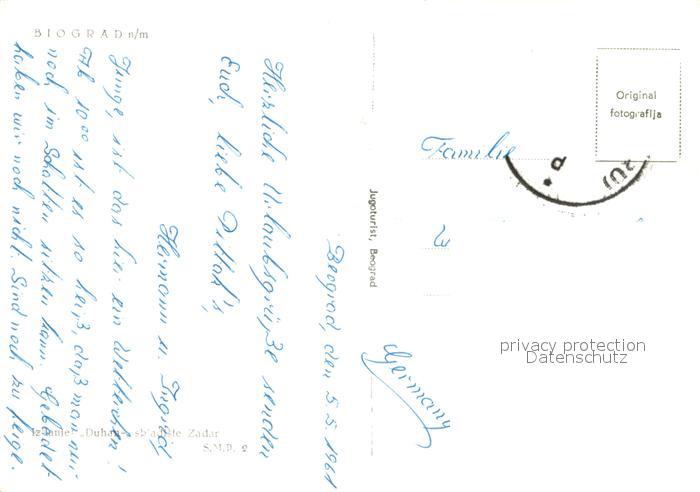 BIOGRAD n/m
Beograd, den 5.5.1961
Herzliche Urlaubsgrüße senden
Euch, liebe
Hermann u. Ingrid
Junge, ist das hier ein Wetterchen!
Ab 10⁰⁰ ist es so heiß, daß man nur
noch im Schatten sitzen kann. Gebadet
haben wir noch nicht. Sind noch zu feige.
Izdanje: „Duhan" sbalište Zadar
S.M.P. 2
Jugoturist, Beograd
Original
fotografija
Familie
Germany
privacy protection
Datenschutz